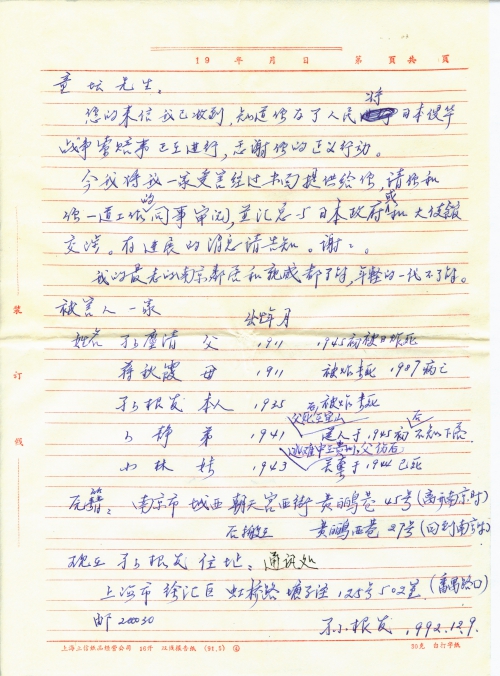 19 年 月 日 第 页共 页
童 先生。
您的来信我已收到,知道你为了人民将日本侵华
战争索赔事正在进行,感谢你的正义行动。
今我将我一家受害经过书面提供给你,请你和
你一道工作的同事审阅,并汇总与日本政府或和大使馆
交涉。有进展的消息请告知。谢:。
我的最老的南京邻居和亲戚都了解,年轻的一代不了解。
被害人一家
出生年月
姓名 清 父 1911 1945初被日炸死
蒋秋霞 母 1911 被炸未死 1987病亡
根发 本人 1935 后被炸未死
静 弟 1941 送人于1945初后不知下落
小林 妹 1943 于1944已死
原籍:南京市城西朝天宫西街黄鹂巷45号(离开南京时)
后搬至 黄鹂西巷27号(回到南京时)
现在 根发住址、通讯处
上海市徐汇区虹桥路 125号502室(番禺路口)
邮200030
根发 1992.12.9.
装
订
线
上海上信纸品经营公司 16开 双线报告纸 (91.5)
30克 白打字纸